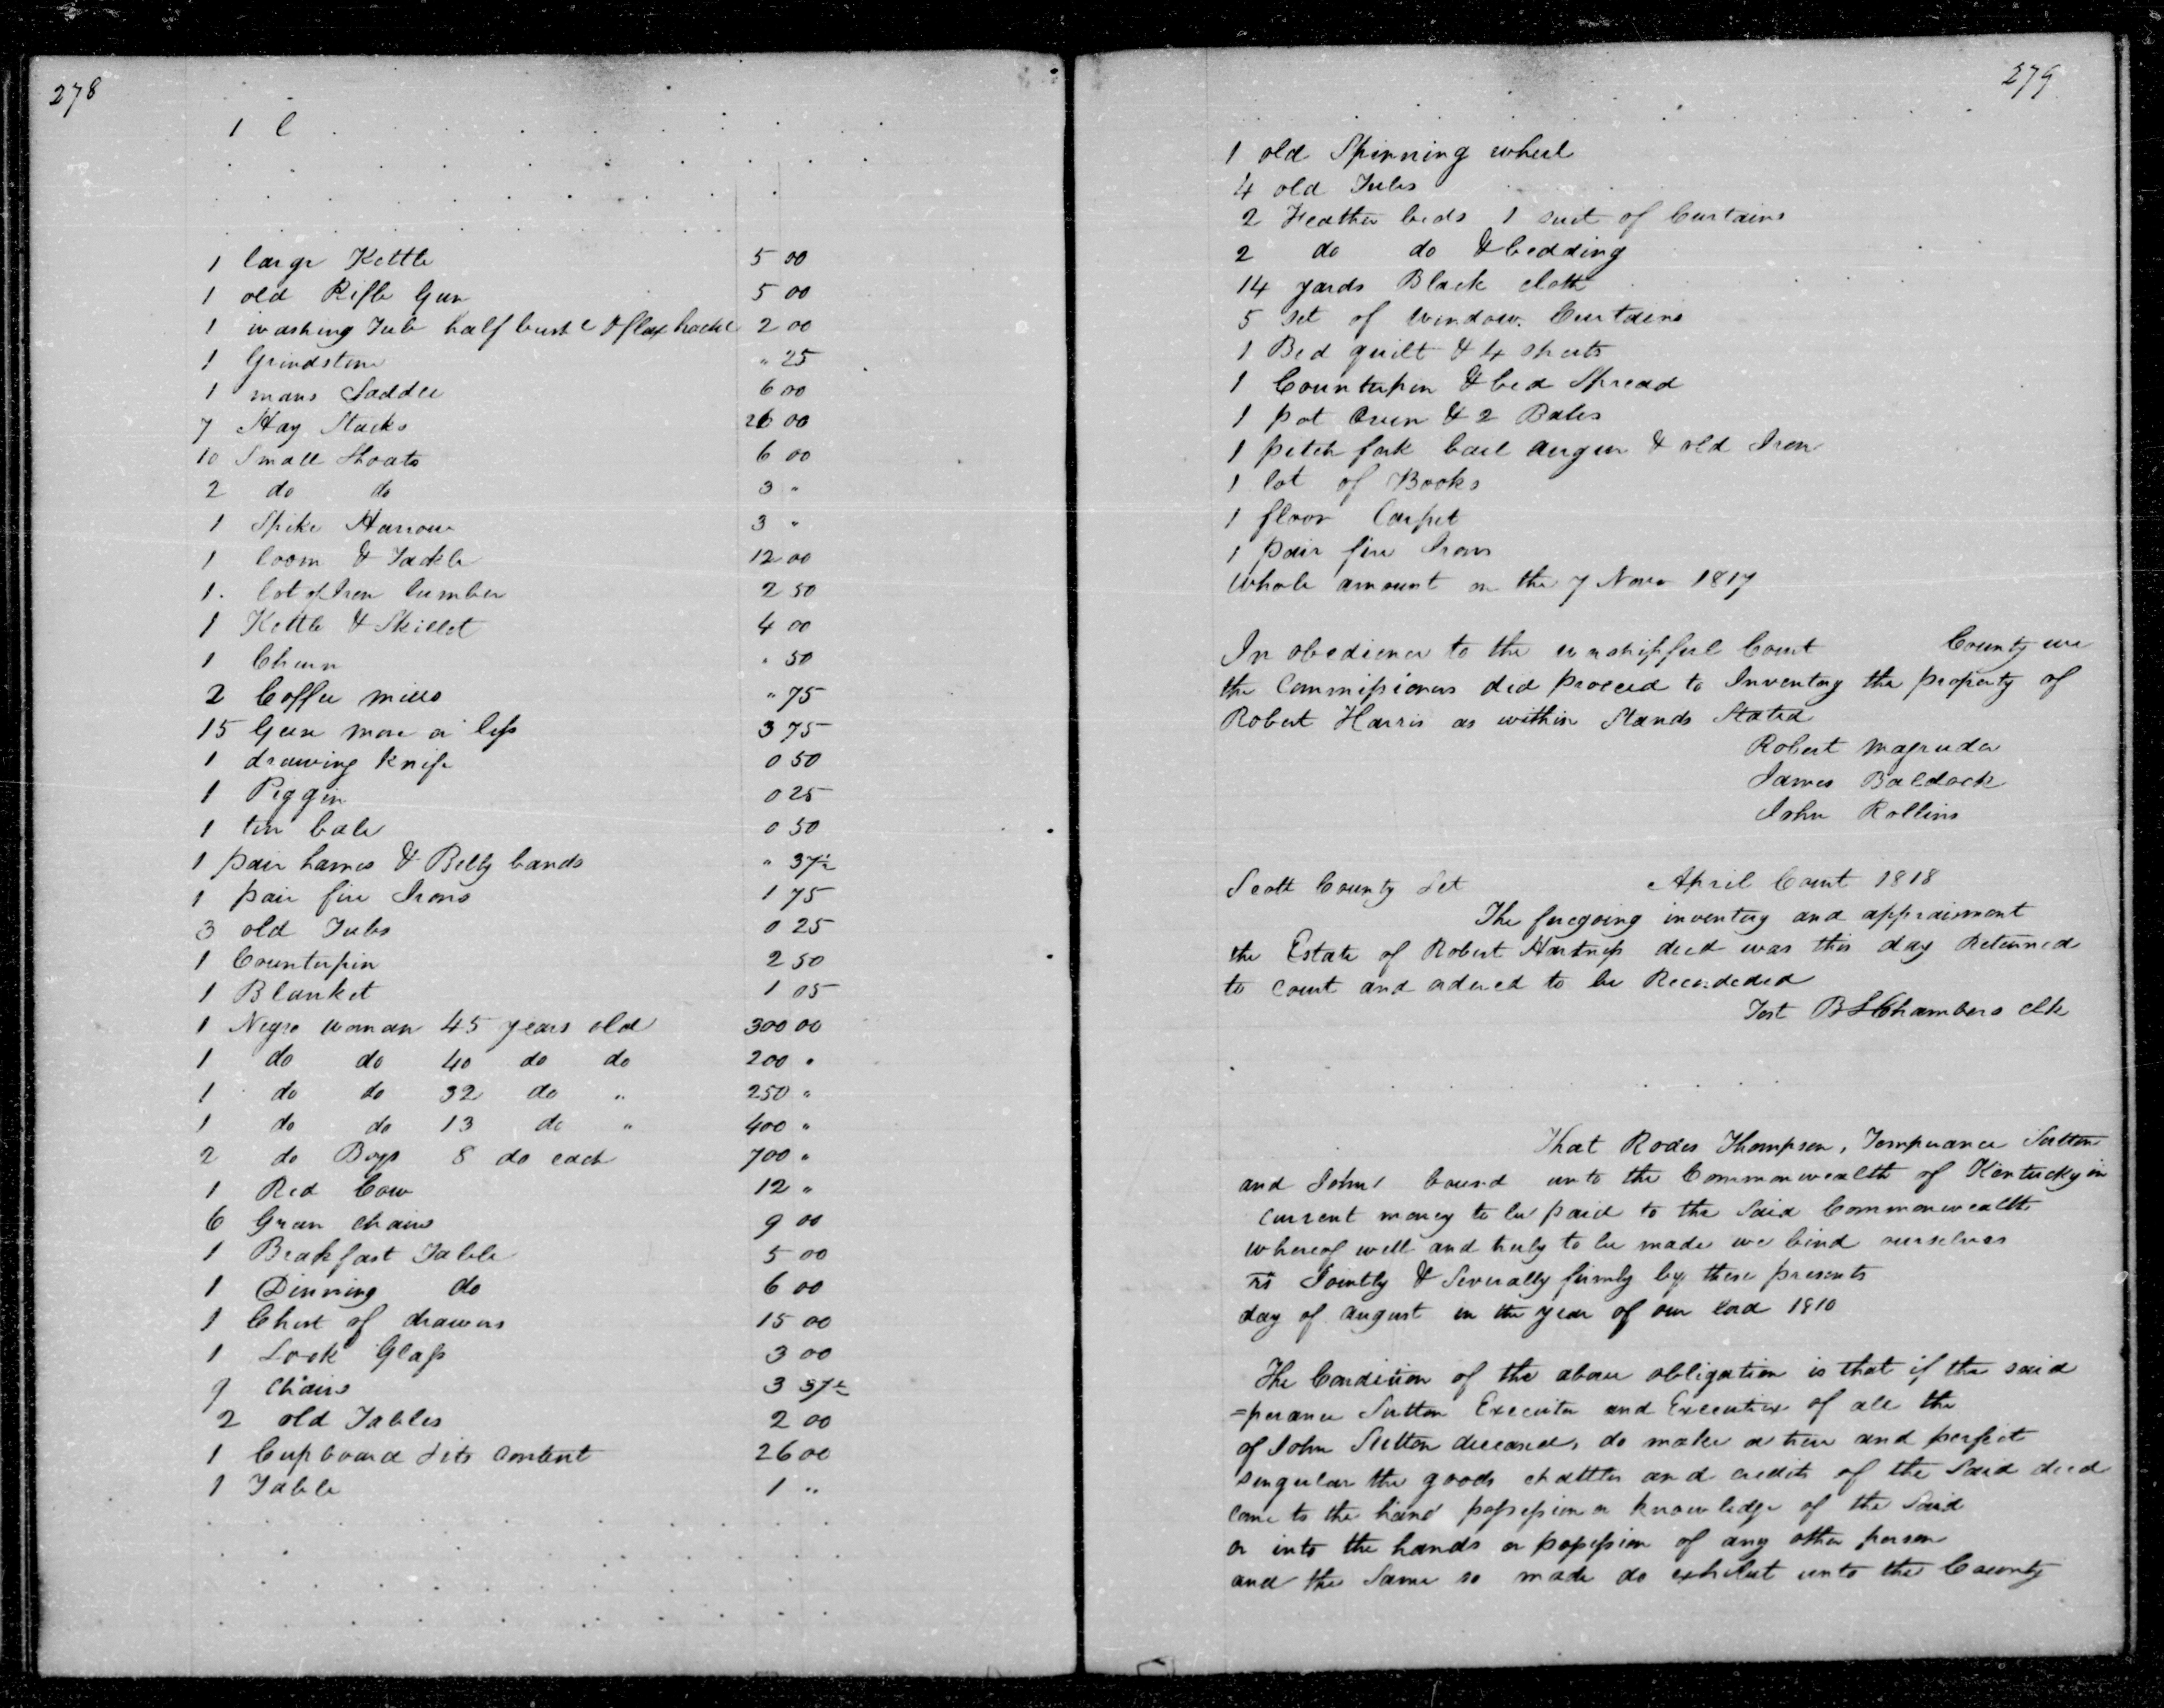 278
1 l
1 large Kettle 5 00
1 old Rifle Gun 5 00
1 washing Tub half bush l & flax hackle 2 00
1 Grindstone " 25
1 mans Saddle 6 00
7 Hay Stacks 26 00
10 Small Shoats 6 00
2 do do 3 "
1 Spike Harrow 3 "
1 loom & Tackle 12 00
1. lot of Iron lumber 2 50
1 Kettle & Skillet 4 00
1 Churn " 50
2 Coffee mills " 75
15 Geese more or less 3 75
1 drawing knife 0 50
1 Piggin 0 25
1 tin bale 0 50
1 pair hames & Belly bands " 37½
1 pair fire Irons 1 75
3 old Tubs 0 25
1 Counterpin 2 50
1 Blanket 1 05
1 Negro woman 45 years old 300 00
1 do do 40 do do 200 "
1 do do 32 do " 250 "
1 do do 13 do " 400 "
2 do Boys 8 do each 700 "
1 Red Cow 12 "
6 Green chairs 9 00
1 Brakfast Table 5 00
1 Dinning do 6 00
1 Chest of drawers 15 00
1 Look Glass 3 00
9 chairs 3 37½
2 old Tables 2 00
1 Cupboard & its content 26 00
1 Table 1 "
279
1 old Spinning wheel
4 old Tubs
2 Feather beds 1 suit of Curtains
2 do do & bedding
14 yards Black cloth
5 set of window Curtains
1 Bed quilt & 4 sheets
1 Counterpin & bed Spread
1 pot Oven & 2 Bales
1 pitch fork bail augur & old Iron
1 lot of Books
1 floor Carpet
1 pair fire Irons
Whole amount on the 7 Novr 1817
In obedience to the worshipful Court County we
the Commissioners did proceed to Inventory the property of
Robert Harris as within Stands Stated
Robert Magruder
James Baldock
John Rollins
Scott County Sct April Court 1818
The foregoing inventory and appraisment
the Estate of Robert Harness decd was this day Returned
to court and ordered to be Recordeded
Test B S Chambers clk
That Rodes Thompson, Temperance Sutton
and John bound unto the Commonwealth of Kentucky in
current money to be paid to the Said Commonwealth
whereof well and truly to be made we bind ourselves
rs Jointly & Severally firmly by these presents
day of August in the year of our Lord 1810
The Condition of the above obligation is that if the said
=perance Sutton Executor and Executrix of all the
of John Sutton deceased, do make a true and perfect
singular the goods chattles and credits of the Said decd
come to the hand possession or knowledge of the Said
or into the hands or possession of any other person
and the Same so made do exhibit unto the County